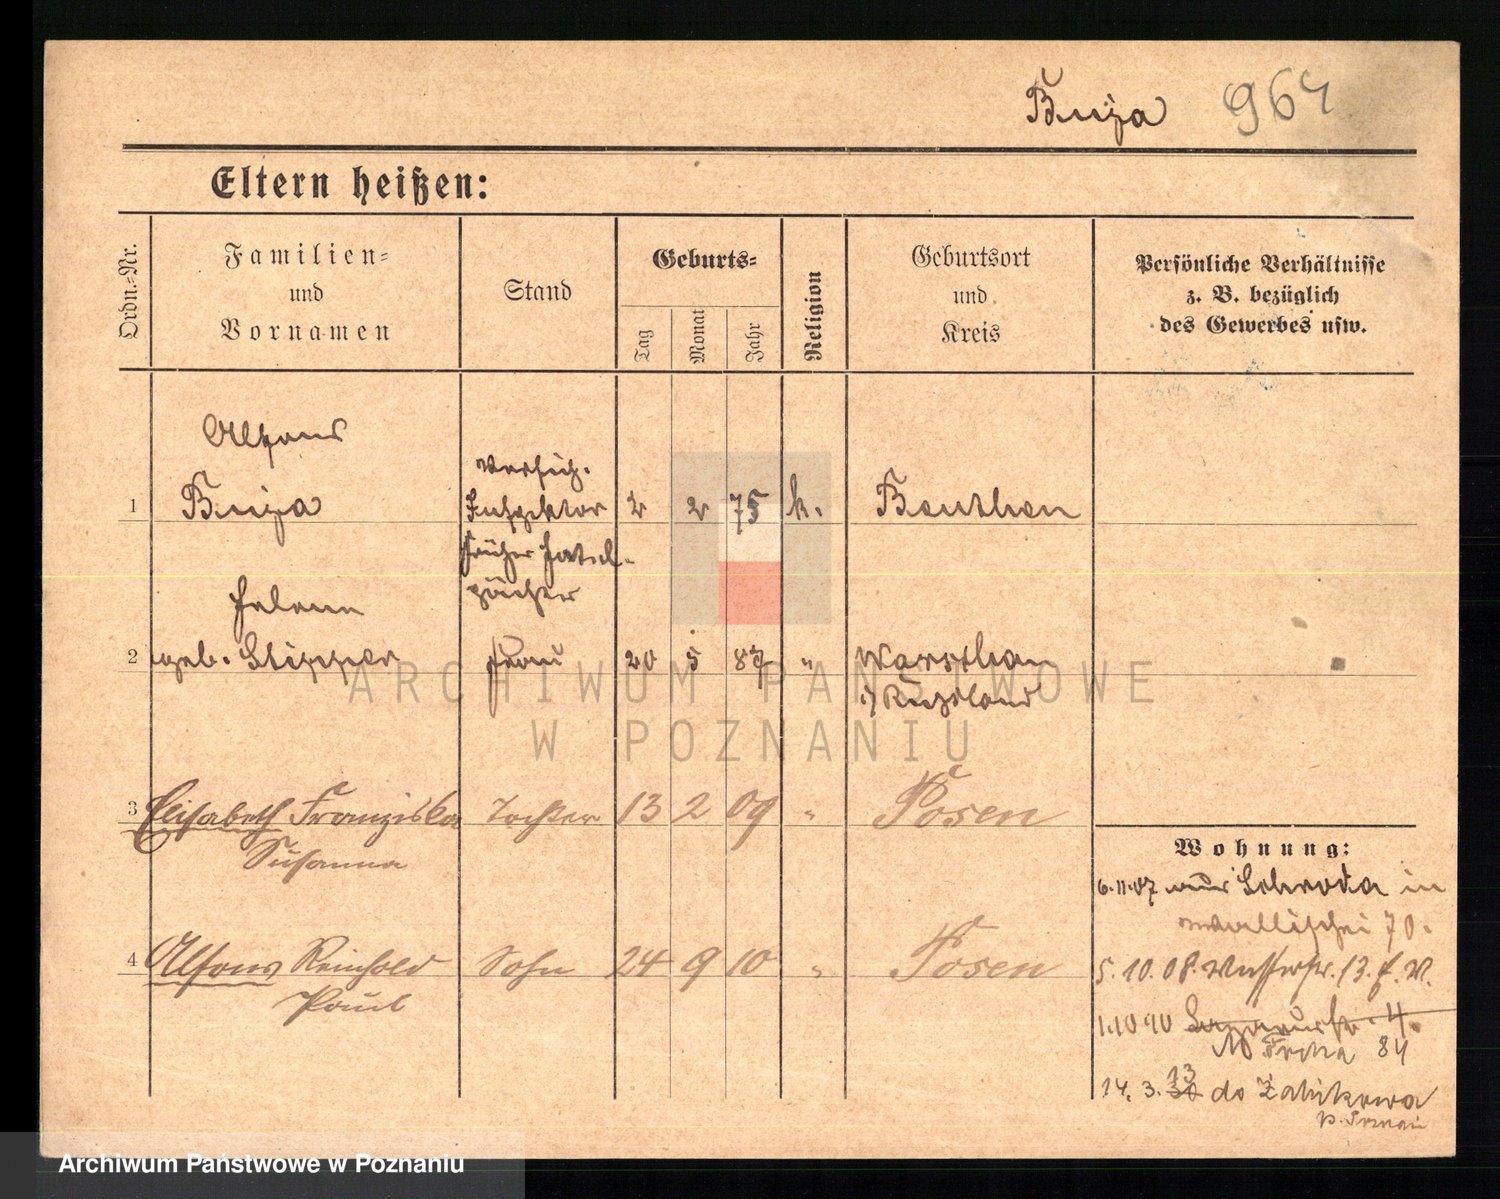 Buja 964
Eltern heißen:
Ordn.-Nr.
Familien-
und
Vornamen
Stand
Geburts-
Tag
Monat
Jahr
Religion
Geburtsort
und
Kreis
Persönliche Verhältnisse
z. B. bezüglich
des Gewerbes usw.
Alfons
1 Buja
Versich.
Inspektor
früher
pächter
2 2 75 k. Beuthen
Helene
2 geb. Stipper Frau 20 5 87 " Warschau
i/ Rußland
3 Elisabeth Franziska Tochter 13 2 09 " Posen
Susanna
4 Alfons Reinhold Sohn 24 9 10 " Posen
Paul
Wohnung:
6.11.07 aus Schroda in
Wallischei 70.
5.10.08. Wasserstr. 13.
1.10 10 Lazarusstr. 4.
84
14. 3. 13 do Żabikowa
p. Poznań
ARCHIWUM PAŃSTWOWE
W POZNANIU
Archiwum Państwowe w Poznaniu